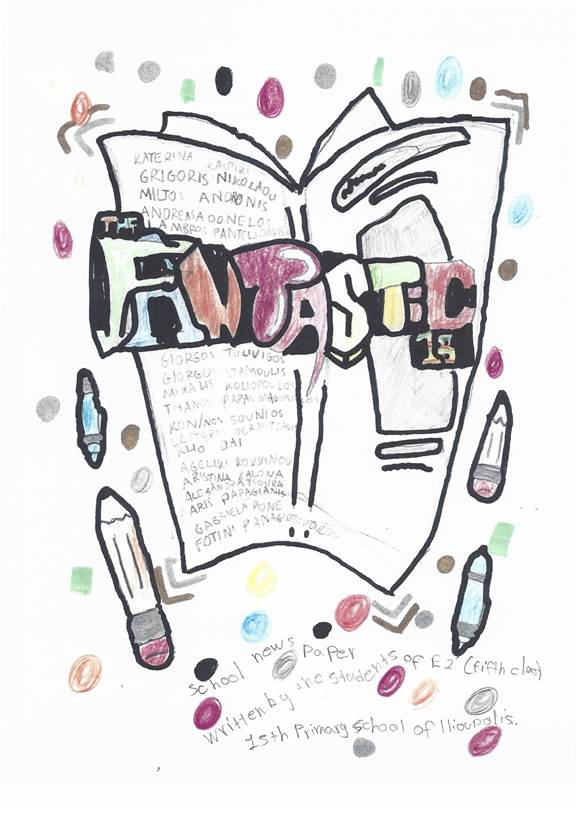 KATERINA KASPIRI
GRIGORIS NIKOLAOU
MILTOS ANDRONIS
ANDREAS AOONELOS
LAMBROS
THE
FANTASTIC
15
GIORGOS TSILIVIGOS
GIORGOS STAMOULIS
MIXALIS KOLIOPOULOS
THANOS
KON/NOS SOUNIOS
LEFTERIS
KLIO DAI
AGELIKI KOKKINOU
XRISTINA KALONA
ALEXANDRA TSOURA
ARIS PAPAGIANIS
GABRIELA PONE
FOTINI PANAGIOTOPOULOU
school news Paper
written by the students of E2' (fifth class)
15th Primary school of Ilioupolis.